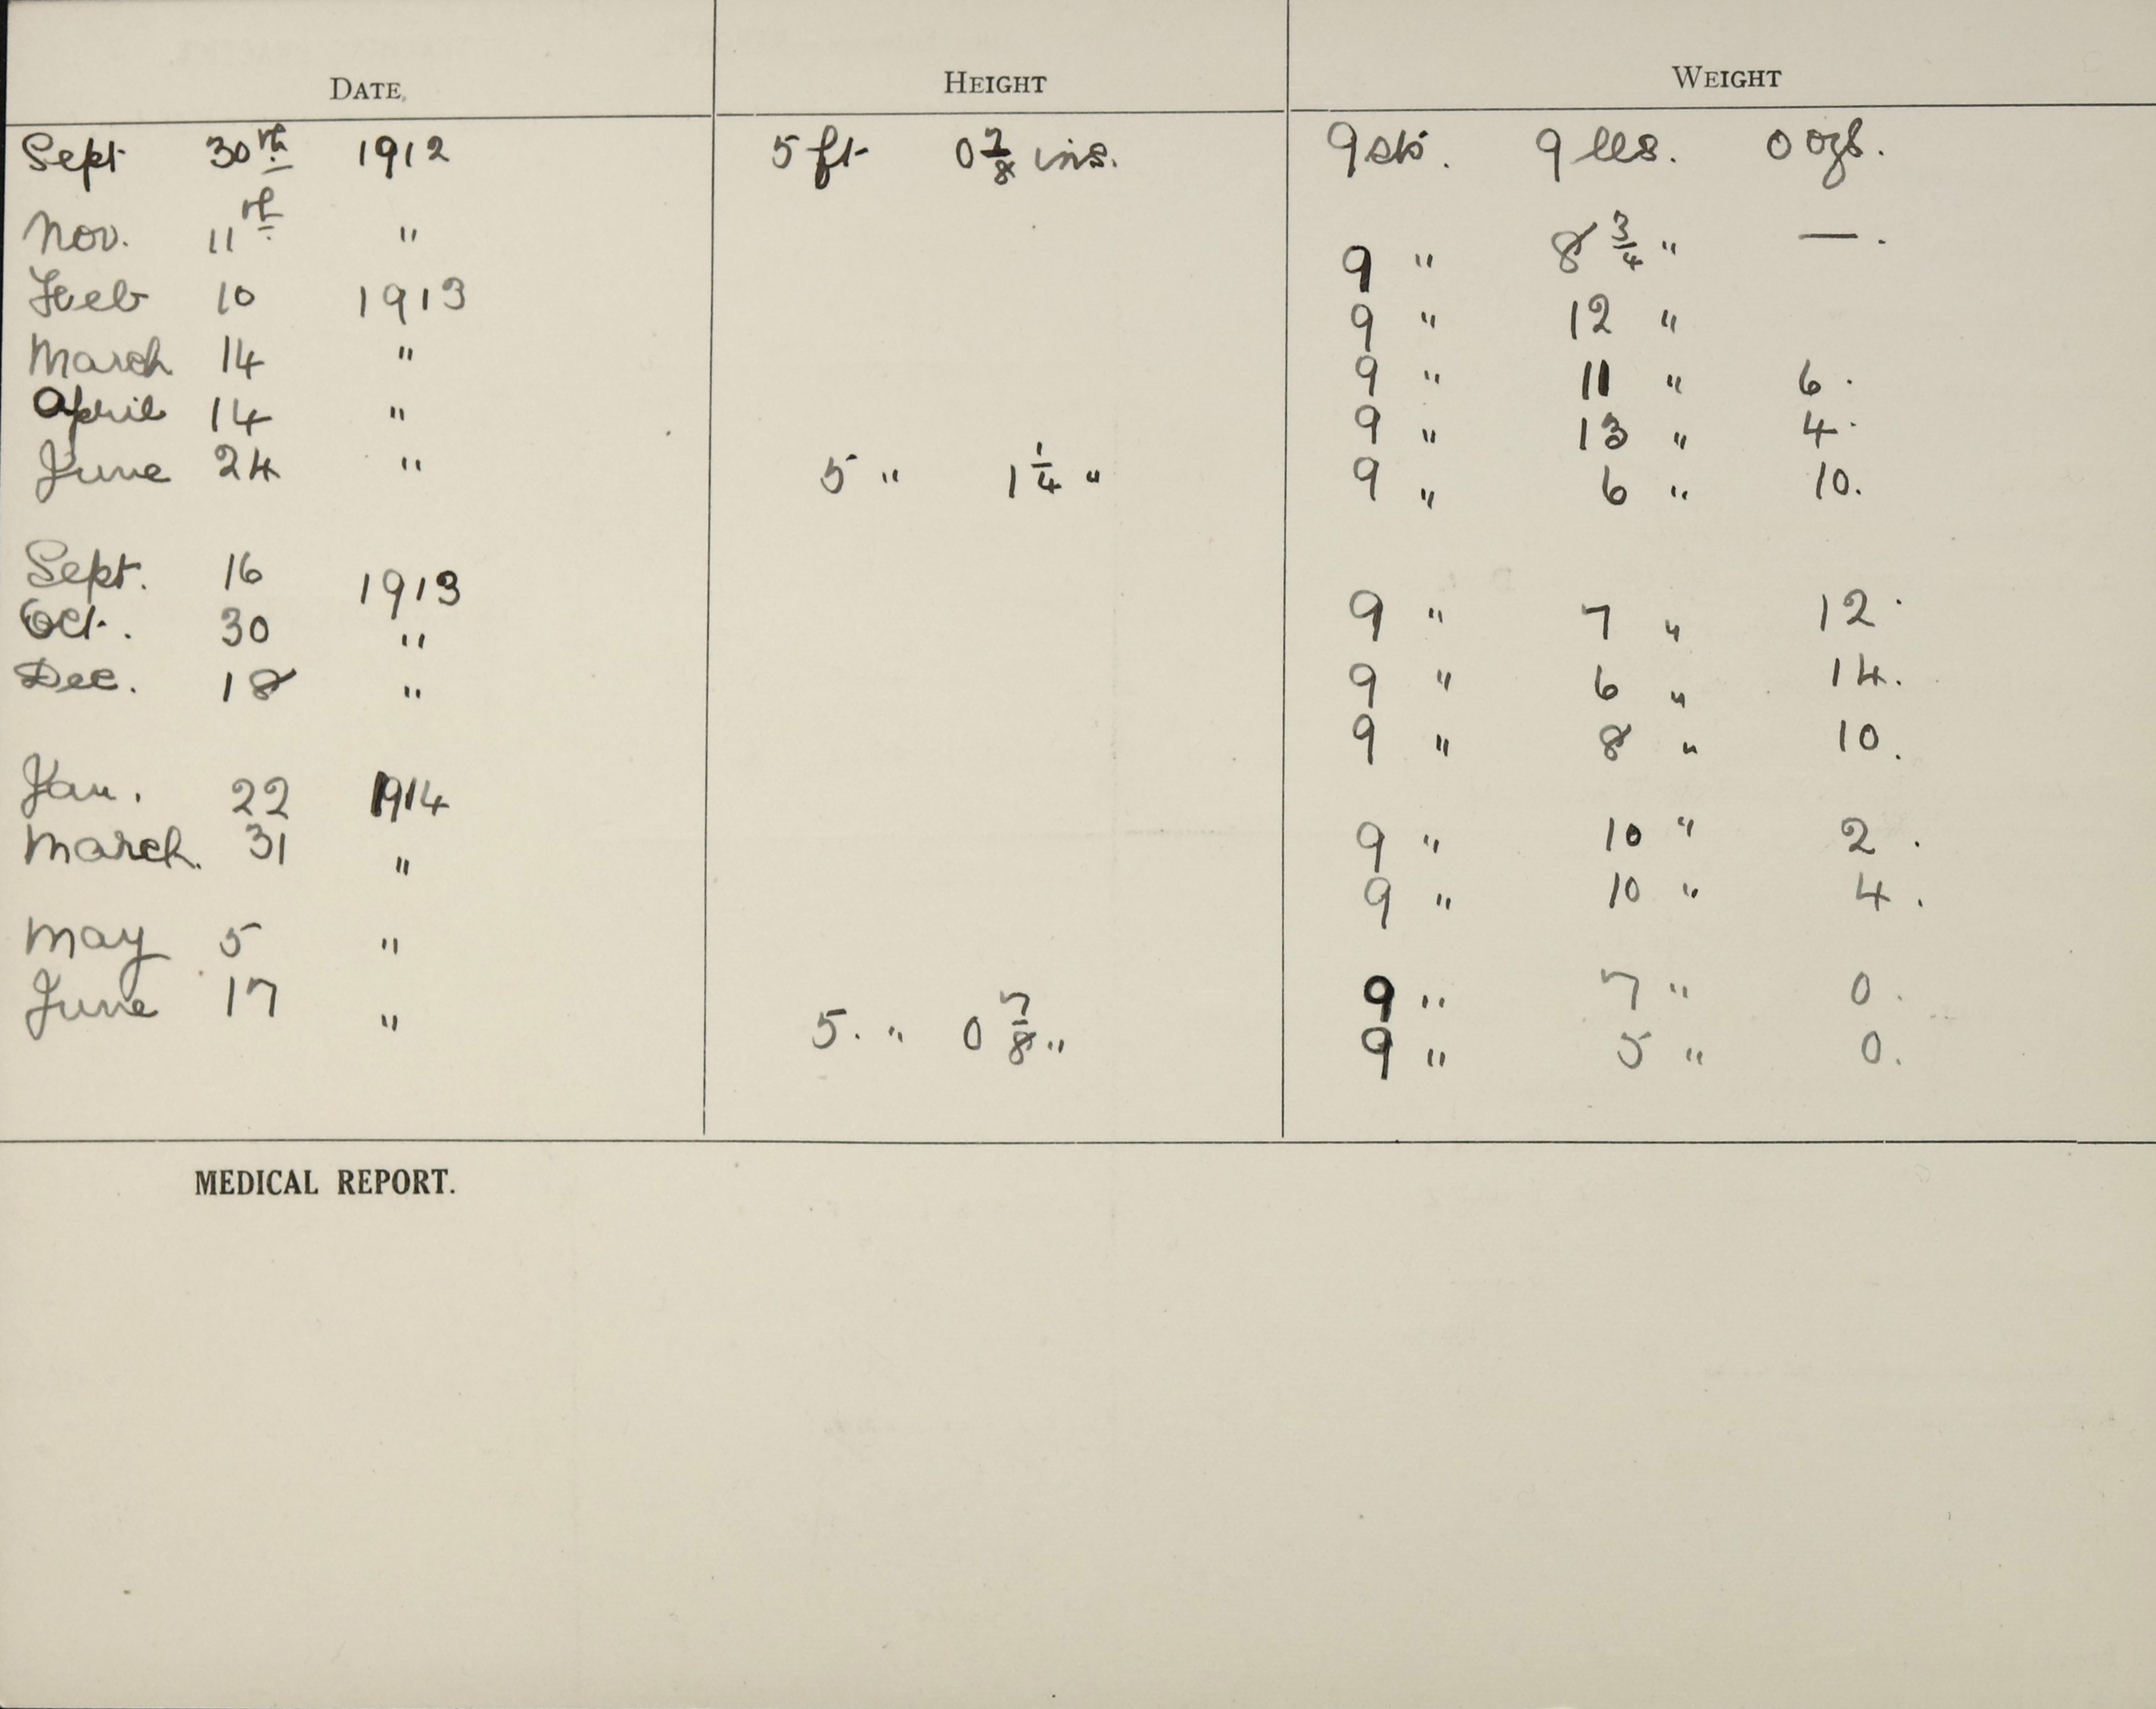 DATE HEIGHT WEIGHT
Sept 30th 1912 5 ft 0 7/8 ins. 9 sts. 9 lbs. 0 ozs.
Nov. 11th " 9 " 8 3/4 " — .
Feb 10 1913 9 " 12 "
March 14 " 9 " 11 " 6.
April 14 " 9 " 13 " 4.
June 24 " 5 " 1 1/4 " 9 " 6 " 10.
Sept. 16 1913 9 " 7 " 12.
Oct. 30 " 9 " 6 " 14.
Dec. 18 " 9 " 8 " 10.
Jan. 22 1914 9 " 10 " 2.
March. 31 " 9 " 10 " 4.
May 5 " 9 " 7 " 0.
June 17 " 5. " 0 7/8 " 9 " 5 " 0.
MEDICAL REPORT.